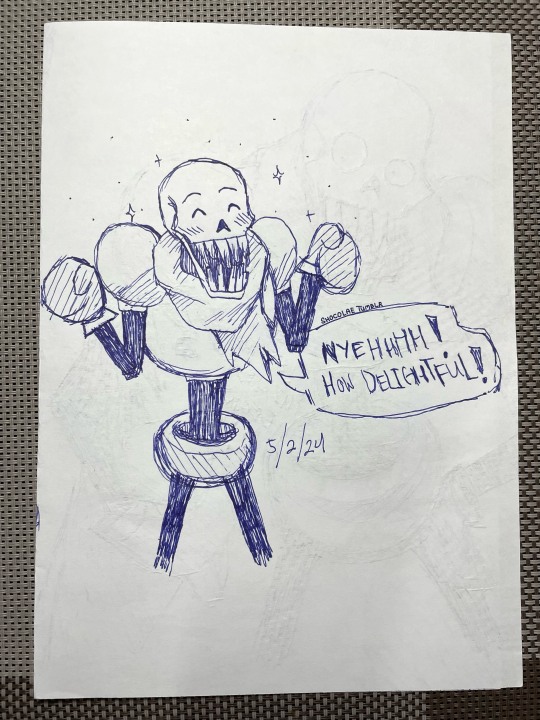 GHOCOLAE TUMBLA
NYEHAHH!
HOW DELIGHTFUL!
5/2/24